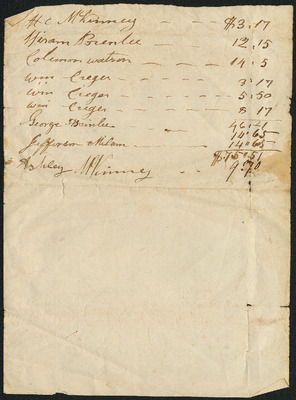 H. C. McKinney - - - $3.17
Hiram Brenlee - - - 12.15
Coleman Watson - - - 14.5
Wm Creger - - - 3.17
Wm Creger - - - 5.50
Wm Creger - - - 8 17
George Brinlee - - 46.21
14.65
Jefferson Milam - - - 14.65
$75.51
McKinney - - - 9.70